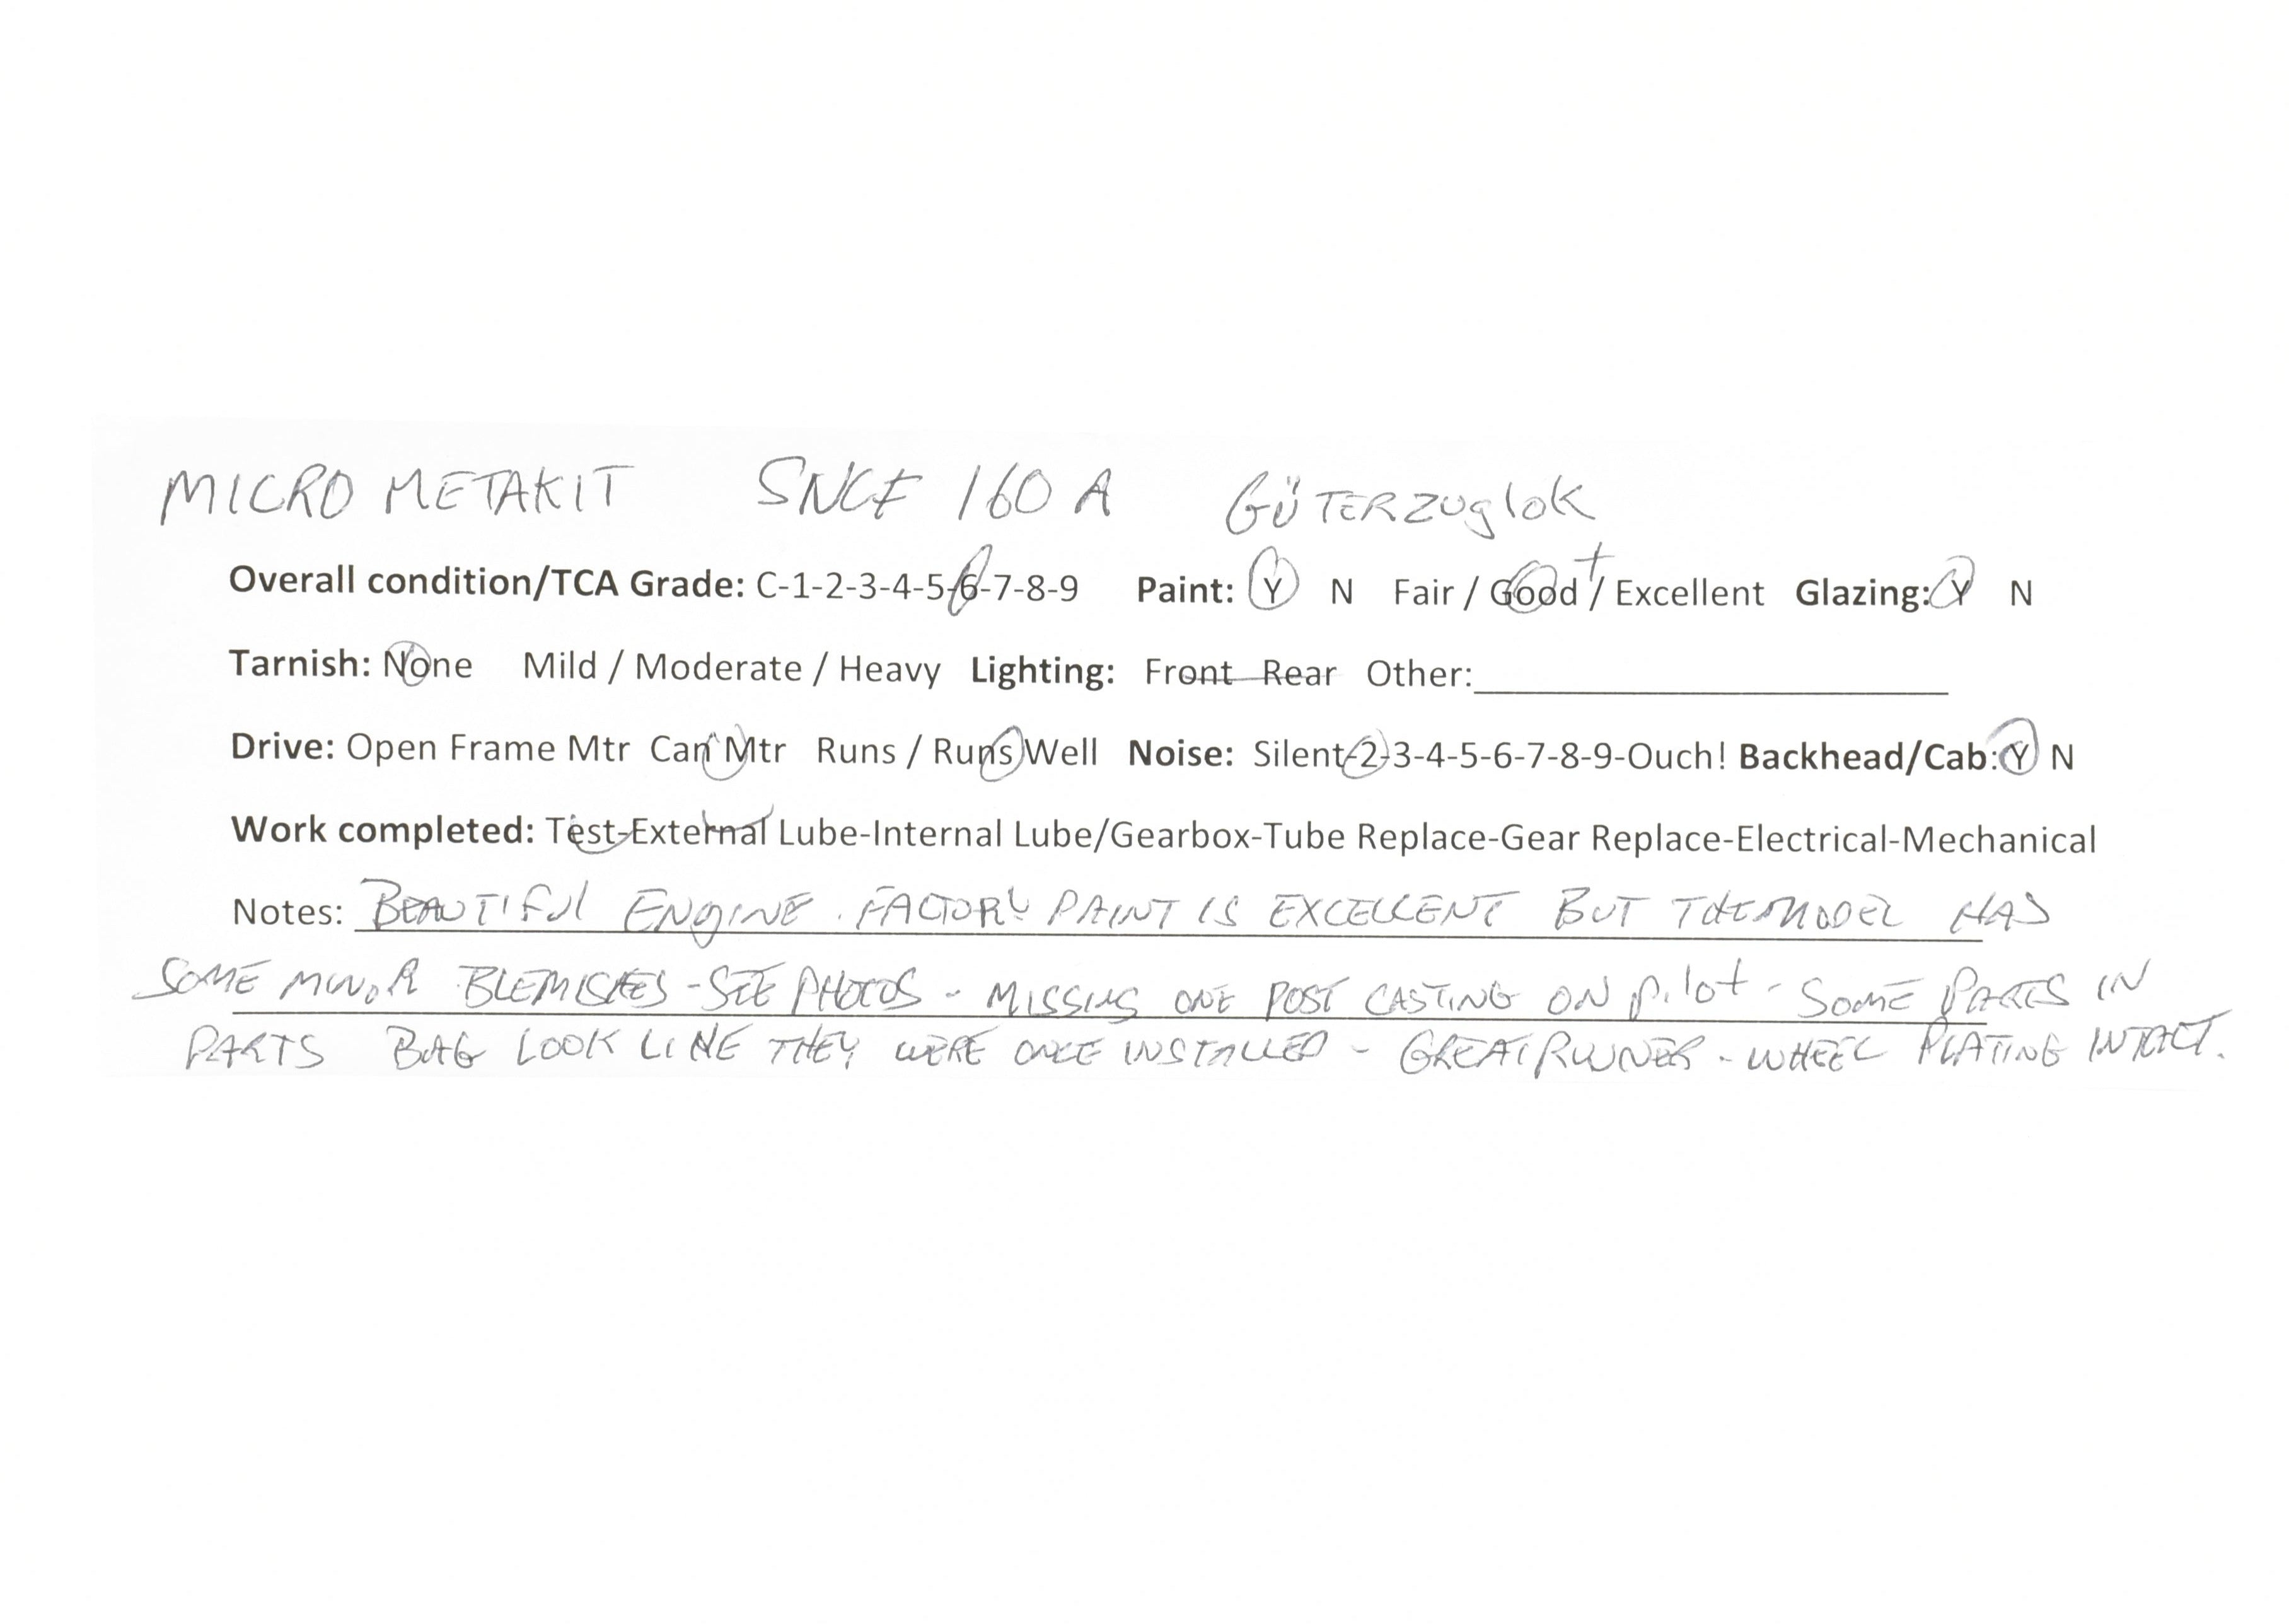 MICRO METAKIT SNCF 160 A GÜTERZUGLOK
Overall condition/TCA Grade: C-1-2-3-4-5-6-7-8-9 Paint: Y N Fair / Good + / Excellent Glazing: Y N
Tarnish: None Mild / Moderate / Heavy Lighting: Front Rear Other:
Drive: Open Frame Mtr Can Mtr Runs / Runs Well Noise: Silent-2-3-4-5-6-7-8-9-Ouch! Backhead/Cab: Y N
Work completed: Test-External Lube-Internal Lube/Gearbox-Tube Replace-Gear Replace-Electrical-Mechanical
Notes: BEAUTIFUL ENGINE. FACTORY PAINT IS EXCELLENT BUT THE MODEL HAS
SOME MINOR BLEMISHES - SEE PHOTOS - MISSING ONE POST CASTING ON PILOT - SOME PARTS IN
PARTS BAG LOOK LIKE THEY WERE ONCE INSTALLED - GREAT RUNNER - WHEEL PLATING INTACT.